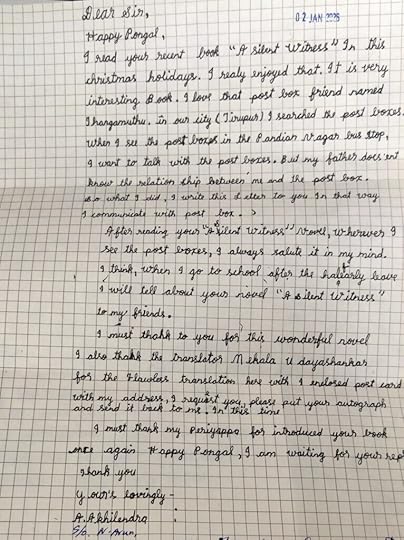 Dear Sir,
02 JAN 2025
Happy Pongal,
I read your recent book "A silent witness" In this
christmas holidays. I realy enjoyed that. It is very
interesting Book. I love that post box friend named
Thangamuthu. in our city (Tirupur) I searched the post boxes.
When I see the post boxes in the Pandian Nagar bus stop,
I want to talk with the post boxes. But my father does'ent
know the relation ship between me and the post box.
so what I did, I write this letter to you In that way
I communicate with post box.
After reading your "A silent Witness" Novel, wherever I
see the post boxes, I always salute it in my mind.
I think, when I go to school after the halfearly leave
I will tell about your novel "A silent Witness"
to my friends.
I must thank to you for this wonderful novel
I also thank the translator Mehala Udayashankar
for the flawless translation here with I enclosed post card
with my address, I request you, please put your autograph
and send it back to me. In this time
I must thank my Periyappa for introduced your book
once again Happy Pongal, I am waiting for your rep
Thank you
Your's lovingly -
A. Akhilendra
S/o. N. Arun,